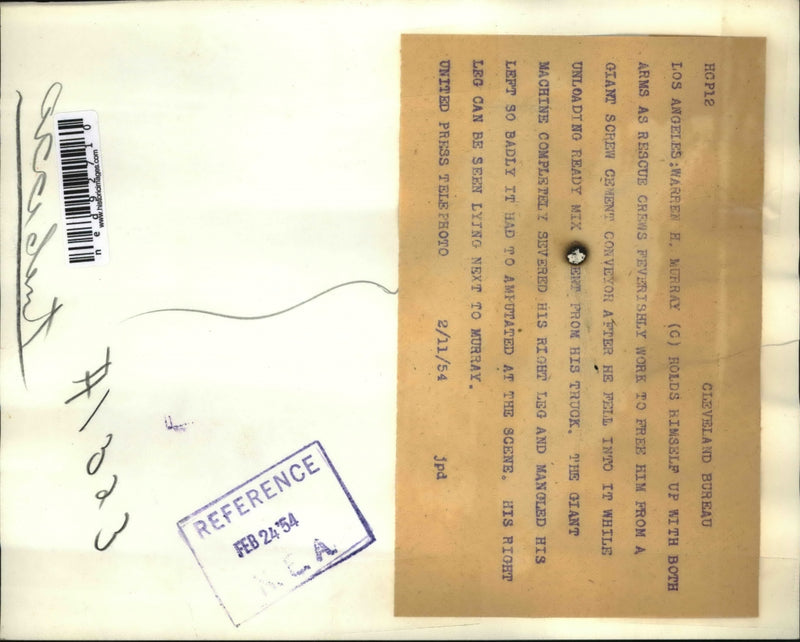 HCP12 CLEVELAND BUREAU
LOS ANGELES:WARREN H. MURRAY (C) HOLDS HIMSELF UP WITH BOTH
ARMS AS RESCUE CREWS FEVERISHLY WORK TO FREE HIM FROM A
GIANT SCREW CEMENT CONVEYOR AFTER HE FELL INTO IT WHILE
UNLOADING READY MIX FROM HIS TRUCK. THE GIANT
MACHINE COMPLETELY SEVERED HIS RIGHT LEG AND MANGLED HIS
LEFT SO BADLY IT HAD TO AMPUTATED AT THE SCENE. HIS RIGHT
LEG CAN BE SEEN LYING NEXT TO MURRAY.
UNITED PRESS TELEPHOTO 2/11/54 jpd
www.historicimages.com
ned92710
#1323
REFERENCE
FEB 24 '54
N.E.A.